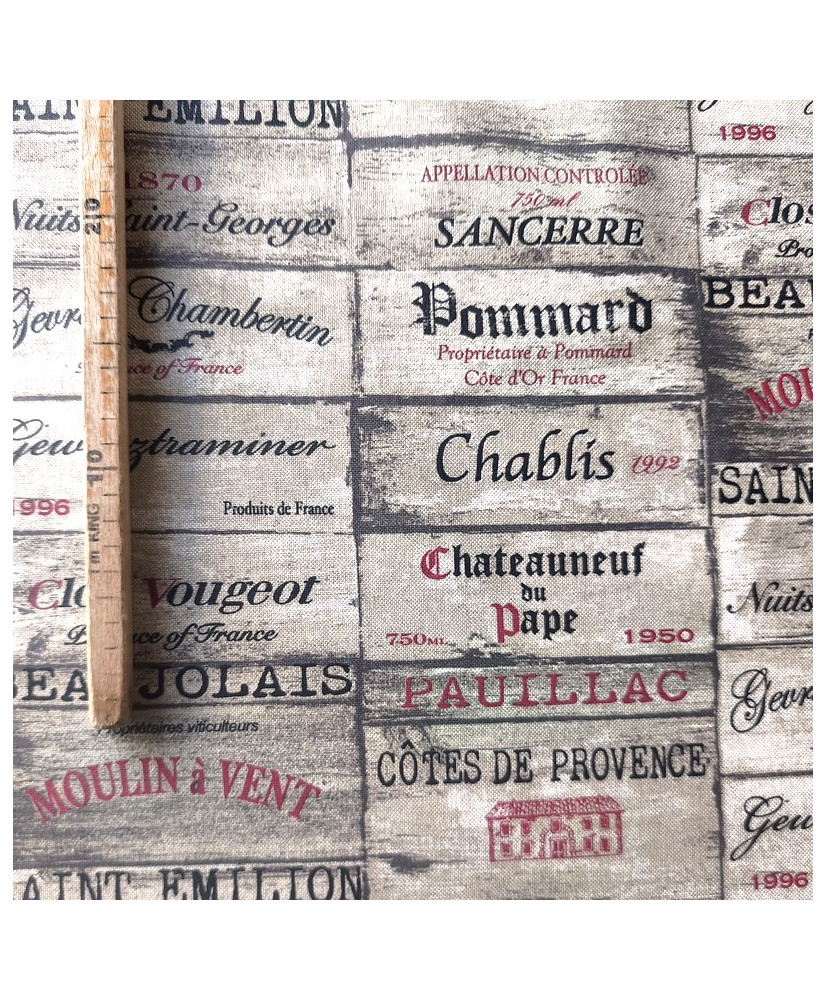 AINT EMILION
1870
Nuits Saint-Georges
Gevr Chambertin
ce of France
Gewürztraminer
1996
Produits de France
Clos Vougeot
P ce of France
BEAUJOLAIS
Propriétaires viticulteurs
MOULIN à VENT
AINT EMILION
20
10
KING
APPELLATION CONTROLÉE
750ml
SANCERRE
Pommard
Propriétaire à Pommard
Côte d'Or France
Chablis 1992
Chateauneuf
du
Pape
750ML 1950
PAUILLAC
CÔTES DE PROVENCE
1996
Clos
Pro
BEAU
MOU
SAIN
Nuits
Gevr
Gew
1996